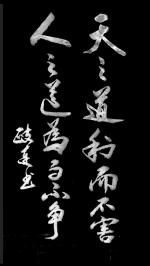 天之道利而不害
人之道为而不争